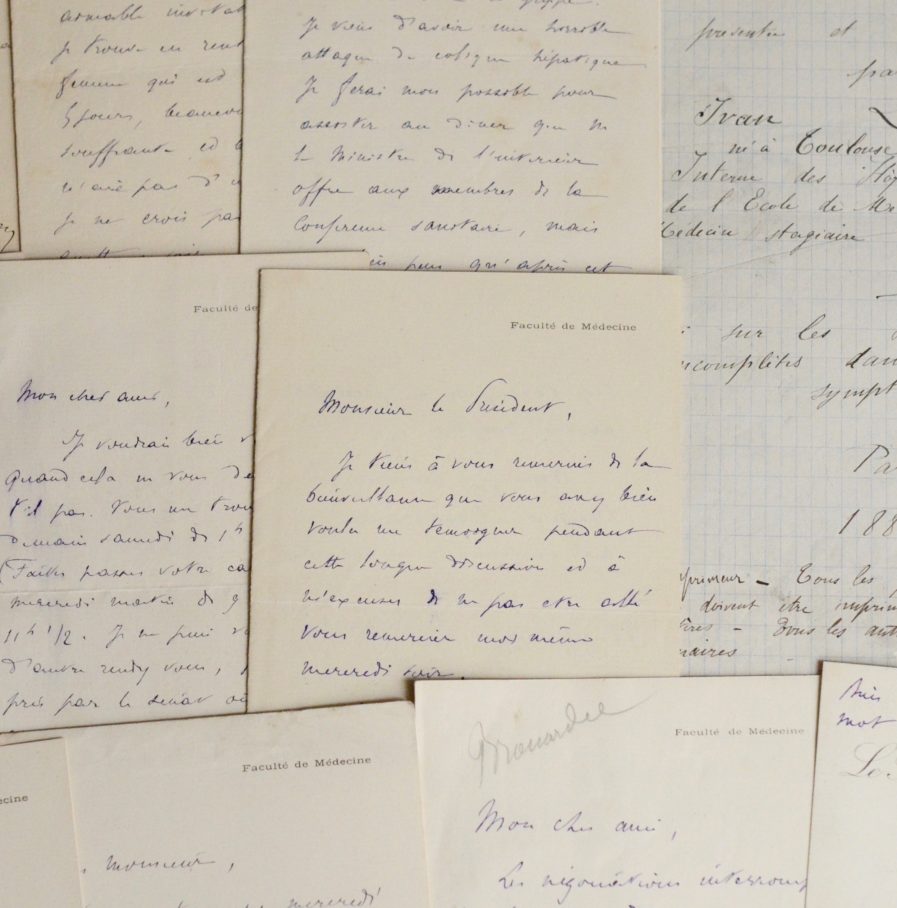 Je trouve en
femme qui est
5 jours, beaucou
souffrante et
Je ne crois pas
Je viens d'avoir une horrible
attaque de colique hépatique
Je ferai mon possible pour
assister au diner que M
le Ministre de l'intérieur
offre aux membres de la
Conférence sanitaire, mais
qu'après cet
présentée et
pa
Ivan
né à Toulouse
Interne des Hôp
de l'Ecole de Mé
Médecin stagiaire
sur les
incomplètes dan
sympt
Pa
188
Tous les
doivent être imprim
Tous les aut
Faculté de
Mon cher ami,
Je voudrais bien v
Quand cela ne vous
t'il pas. Vous me trou
demain samedi de 1h
(Faites passer votre ca
mercredi matin de 9
11h 1/2. Je ne puis v
d'autre rendez vous,
pris par le sénat où
Faculté de Médecine
Monsieur le Président,
Je tiens à vous remercier de la
bienveillance que vous avez bien
voulu me témoigner pendant
cette longue discussion et à
m'excuser de ne pas etre allé
vous remercier moi même
mercredi soir.
ecine
Faculté de Médecine
Monsieur,
mercredi
Brouardel
Faculté de Médecine
Mon cher ami,
Les négociations interromp
mot
Le